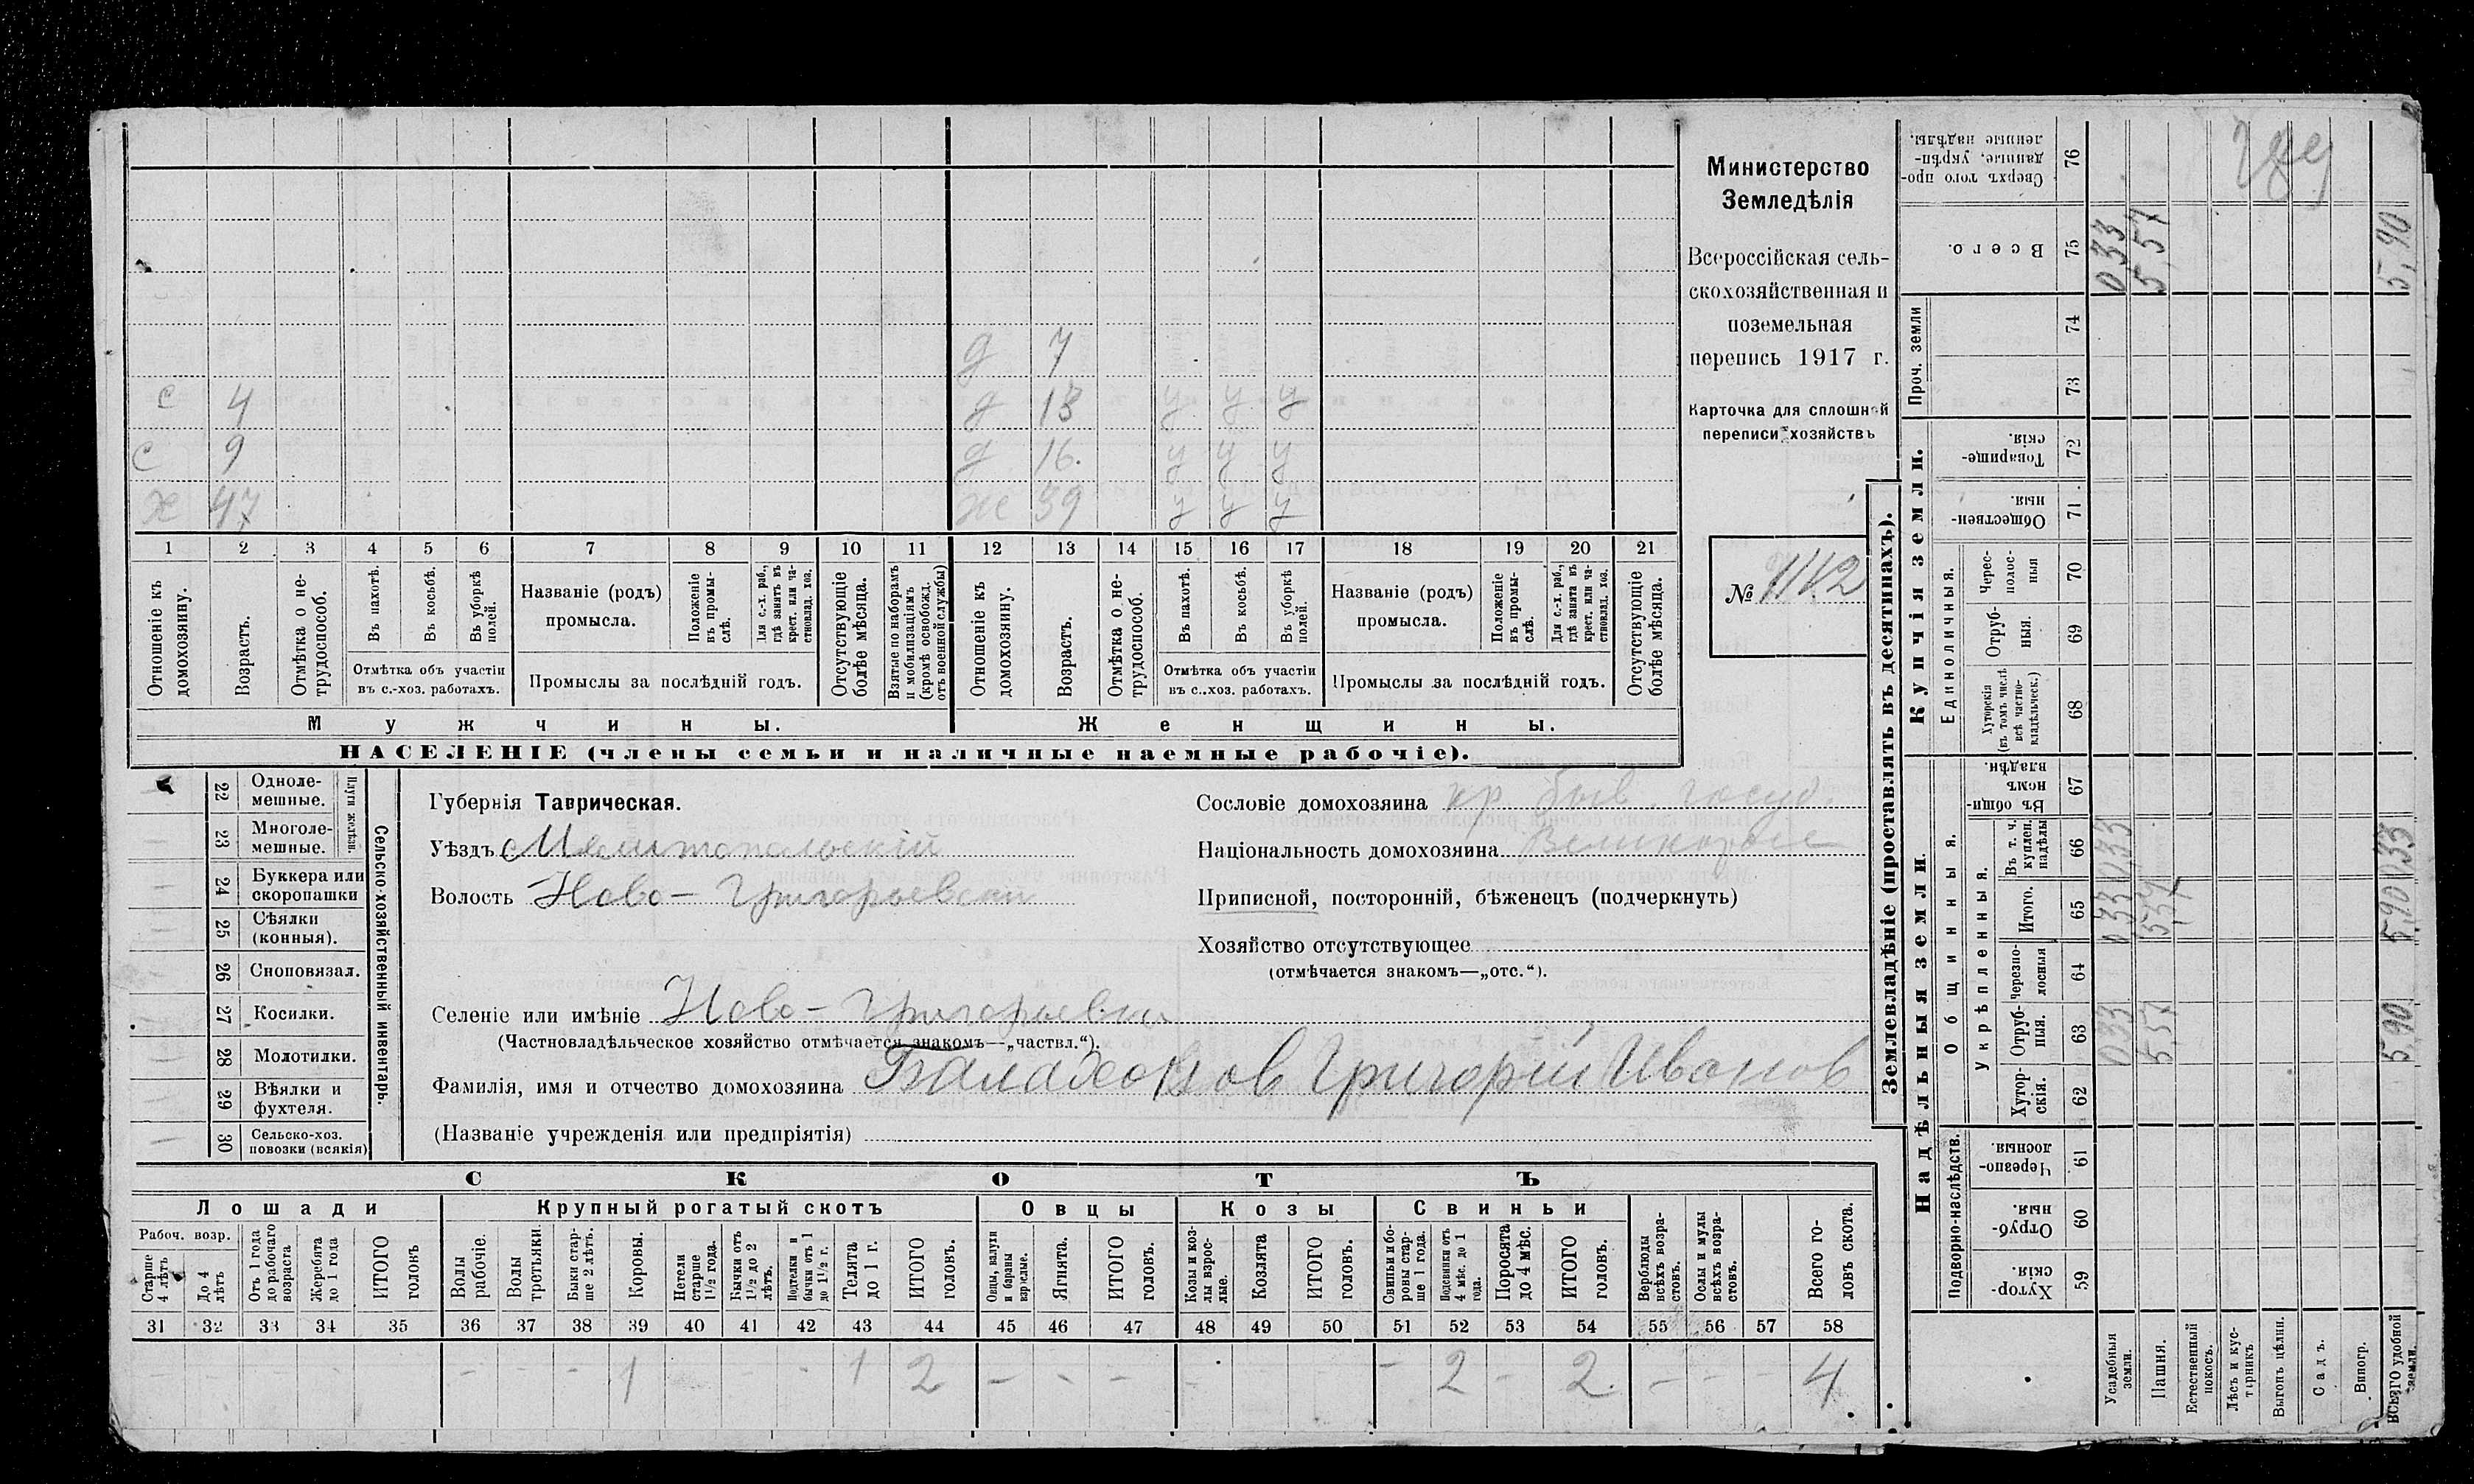 Министерство
Земледѣлія
Всероссійская сель-
скохозяйственная и
поземельная
перепись 1917 г.
Карточка для сплошной
переписи хозяйствъ
№ 1112
с 4
с 9
х 47
д 7
д 13 у у у
д 16. у у у
ж 39 у у у
1 2 3 4 5 6 7 8 9 10 11 12 13 14 15 16 17 18 19 20 21
Отношеніе къ домохозяину.
Возрастъ.
Отмѣтка о не-трудоспособ.
Въ пахотѣ.
Въ косьбѣ.
Въ уборкѣ полей.
Отмѣтка объ участіи
въ с.-хоз. работахъ.
Названіе (родъ)
промысла.
Положеніе въ промы-слѣ.
Для с.-х. раб., гдѣ занятъ въ крест. или ча-стновлад. хоз.
Промыслы за послѣдній годъ.
Отсутствующіе болѣе мѣсяца.
Взятые по наборамъ и мобилизаціямъ (кромѣ освобожд. отъ военной службы)
Отношеніе къ домохозяину.
Возрастъ.
Отмѣтка о не-трудоспособ.
Въ пахотѣ.
Въ косьбѣ.
Въ уборкѣ полей.
Отмѣтка объ участіи
въ с.-хоз. работахъ.
Названіе (родъ)
промысла.
Положеніе въ промы-слѣ.
Для с.-х. раб., гдѣ занята въ крест. или ча-стновлад. хоз.
Промыслы за послѣдній годъ.
Отсутствующіе болѣе мѣсяца.
Мужчины. Женщины.
НАСЕЛЕНІЕ (члены семьи и наличные наемные рабочіе).
Сельско-хозяйственный инвентарь.
Плуги желѣзн.
22 Одноле-мешные.
23 Многоле-мешные.
24 Буккера или скоропашки
25 Сѣялки (конныя).
26 Сноповязал.
27 Косилки.
28 Молотилки.
29 Вѣялки и фухтеля.
30 Сельско-хоз. повозки (всякія)
Губернія Таврическая.
Уѣздъ Мелитопольскій
Волость Ново-Григорьевская
Селеніе или имѣніе Ново-Григорьевка
(Частновладѣльческое хозяйство отмѣчается знакомъ—„частвл.“).
Фамилія, имя и отчество домохозяина Григорій Иванов
(Названіе учрежденія или предпріятія)
Сословіе домохозяина кр быв. госуд.
Національность домохозяина Великоросс
Приписной, посторонній, бѣженецъ (подчеркнуть)
Хозяйство отсутствующее
(отмѣчается знакомъ—„отс.“).
СКОТЪ
Лошади Крупный рогатый скотъ Овцы Козы Свиньи
Рабоч. возр.
Старше 4 лѣтъ
До 4 лѣтъ
Отъ 1 года до рабочаго возраста
Жеребята до 1 года
ИТОГО головъ
Волы рабочіе.
Волы третьяки.
Быки стар-ше 2 лѣтъ.
Коровы.
Нетели старше 1½ года.
Бычки отъ 1½ до 2 лѣтъ.
Подтелки и бычки отъ 1 до 1½ г.
Телята до 1 г.
ИТОГО головъ.
Овцы, валухи и бараны взрослые.
Ягнята.
ИТОГО головъ.
Козы и коз-лы взрос-лые.
Козлята
ИТОГО головъ.
Свиньи и бо-ровы стар-ше 1 года.
Подсвинки отъ 4 мѣс. до 1 года.
Поросята до 4 мѣс.
ИТОГО головъ.
Верблюды всѣхъ возра-стовъ.
Ослы и мулы всѣхъ возра-стовъ.
Всего го-ловъ скота.
31 32 33 34 35 36 37 38 39 40 41 42 43 44 45 46 47 48 49 50 51 52 53 54 55 56 57 58
- - - 1 - 1 2 - - - - - 2 - 2. - - - 4
Землевладѣніе (проставлять въ десятинахъ).
Надѣльныя земли. Купчія земли. Проч. земли
Подворно-наслѣдств.
Общинныя.
Укрѣпленныя.
Единоличныя.
59 Хутор-скія.
60 Отруб-ныя.
61 Черезпо-лосныя
62 Хутор-скія.
63 Отруб-ныя.
64 Черезпо-лосныя
65 Итого.
66 Въ т. ч. куплен. надѣлы
67 Въ общи-номъ владѣн.
68 Хуторскія (въ томъ числѣ всѣ частно-владѣльческ.)
69 Отруб-ныя.
70 Черес-полос-ныя
71 Обществен-ныя.
72 Товарище-скія.
73
74
75 Всего.
76 Сверхъ того про-данные, укрѣп-ленные надѣлы.
Усадебныя земли. 0,33 0,33 0,33 0,33
Пашня. 5,57 5,57 5,57
Естественный покосъ.
Лѣсъ и кус-тарникъ
Выгонъ цѣлин.
Садъ.
Виногр.
ВСЕГО удобной земли. 5,90 5,90 0,33 5,90